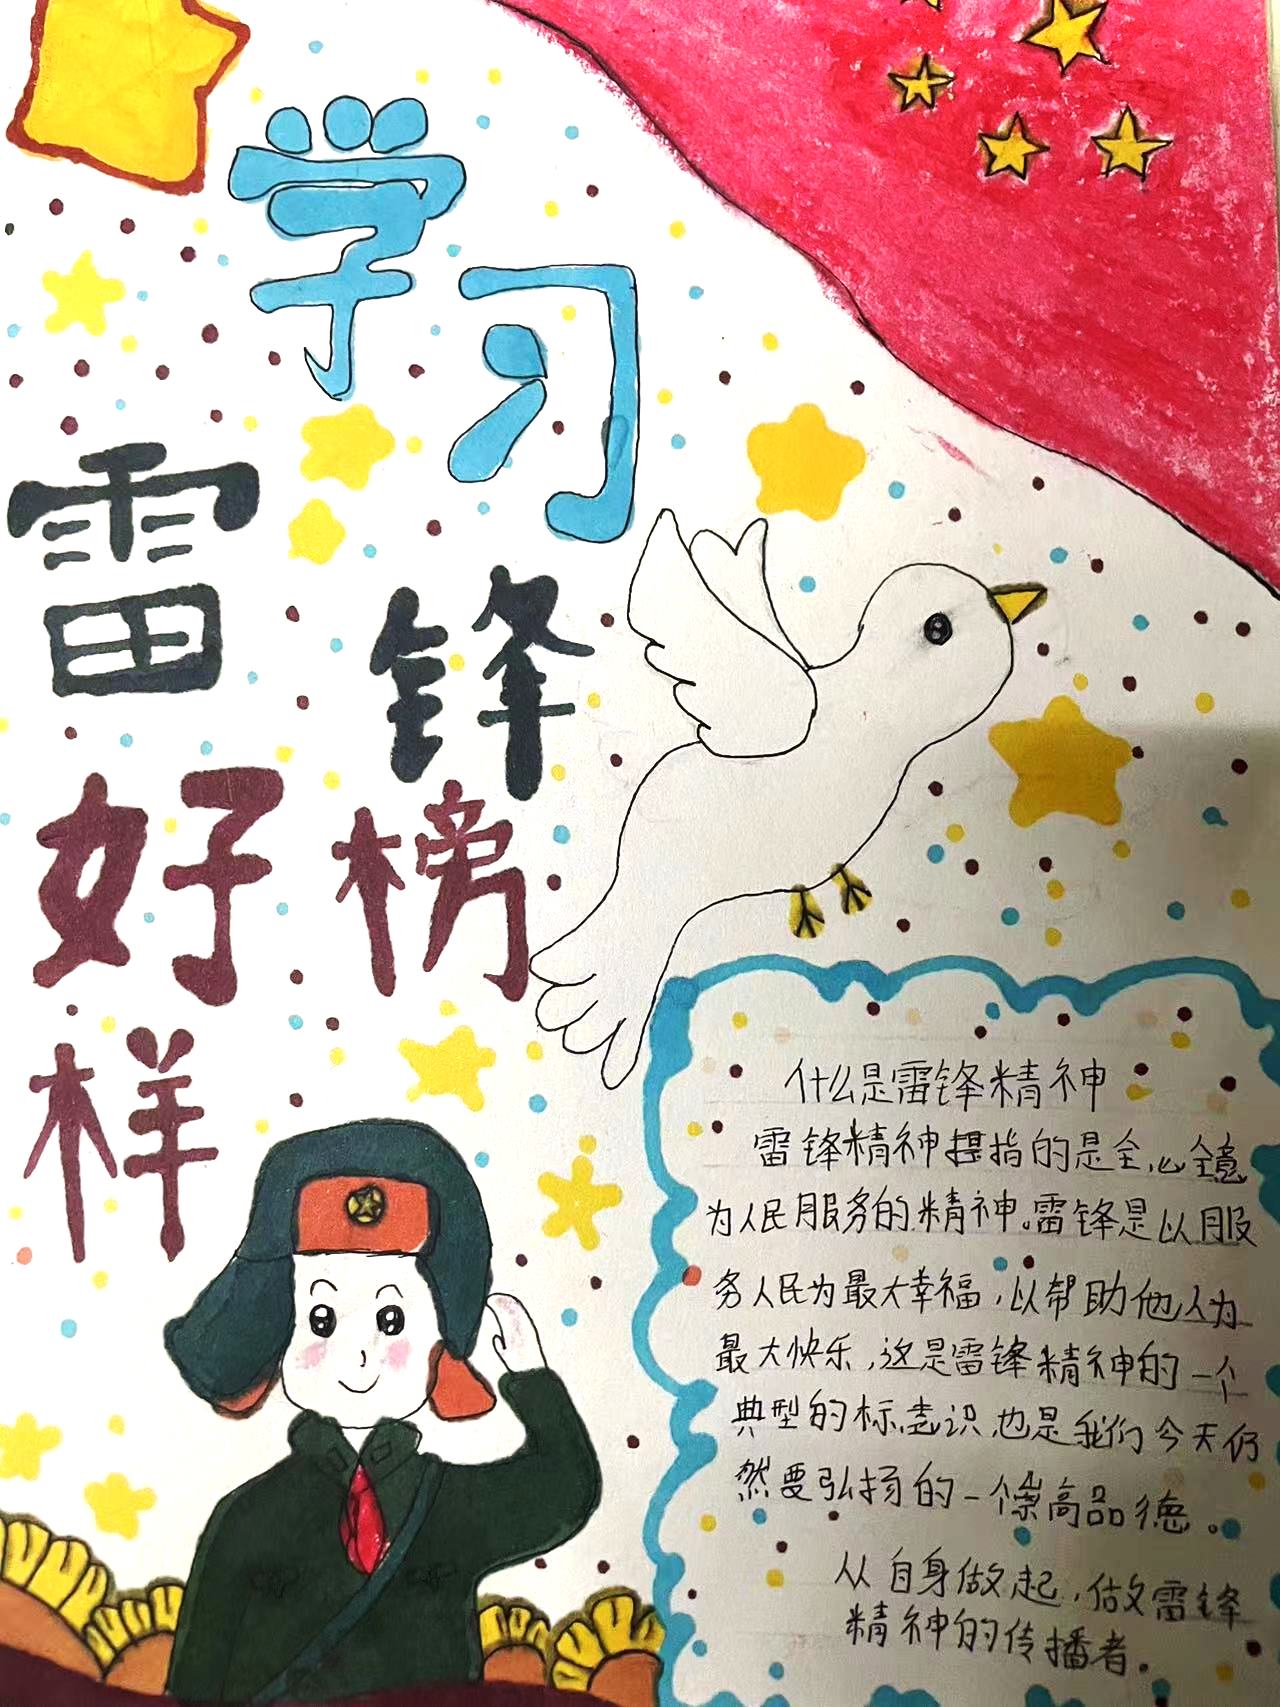 学习
雷锋
好榜
样
什么是雷锋精神
雷锋精神提指的是全心全意
为人民服务的精神。雷锋是以服
务人民为最大幸福,以帮助他人为
最大快乐,这是雷锋精神的一个
典型的标志识,也是我们今天仍
然要弘扬的一个崇高品德。
从自身做起,做雷锋
精神的传播者。